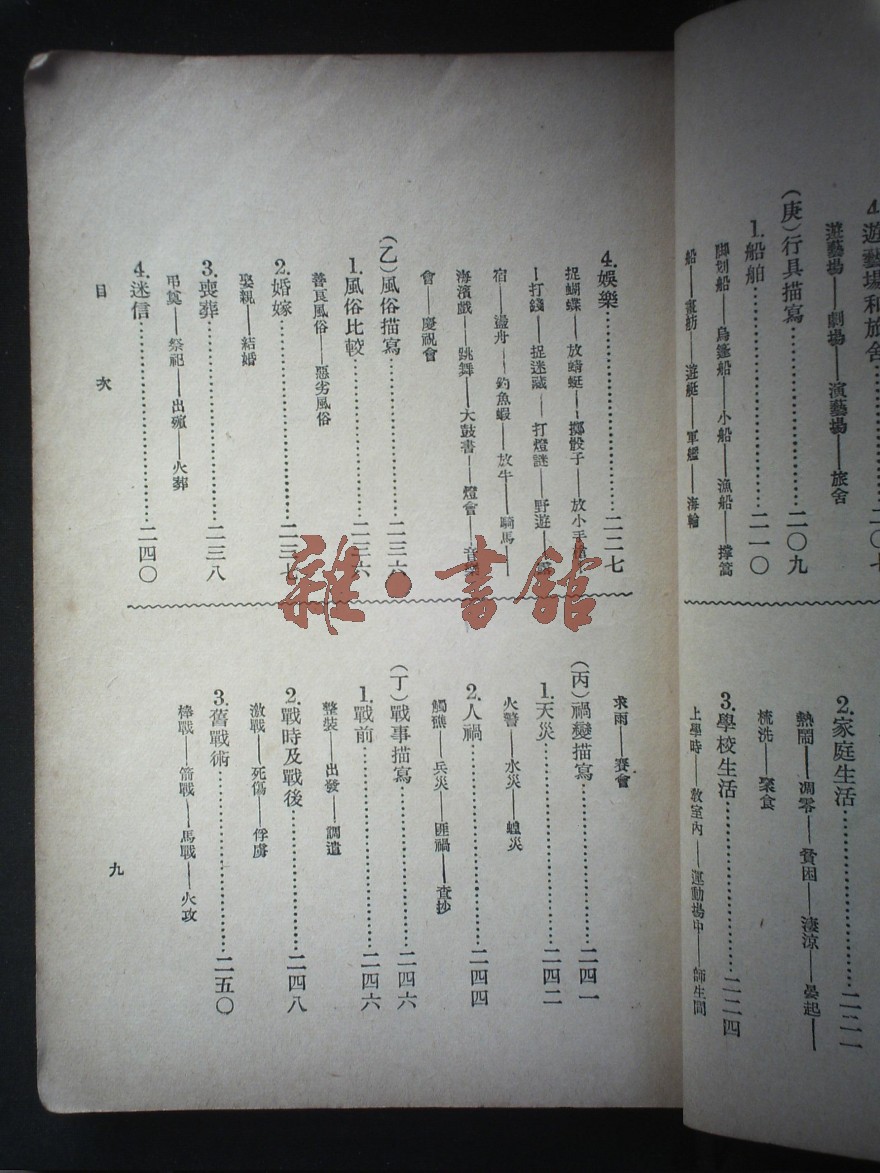 4.遊藝場和旅舍……二〇七
遊藝場——劇場——演藝場——旅舍
(庚)行具描寫……二〇九
1.船舶……二一〇
脚划船——烏篷船——小船——漁船——撐篙
船——畫舫——遊艇——軍艦——海輪
2.家庭生活……二二一
熱鬧——凋零——貧困——淒涼——晏起——
梳洗——聚食
3.學校生活……二二四
上學時——教室內——運動場中——師生間
4.娛樂……二二七
捉蝴蝶——放蜻蜓——擲骰子——放小手
—打錢——捉迷藏——打燈謎——野遊——
宿——盪舟——釣魚蝦——放牛——騎馬—
海濱戲——跳舞——大鼓書——燈會——音樂
會——慶祝會
(乙)風俗描寫……二三六
1.風俗比較……二三六
善良風俗——惡劣風俗
2.婚嫁……二三七
娶親——結婚
3.喪葬……二三八
弔奠——祭祀——出殯——火葬
4.迷信……二四〇
求雨——賽會
(丙)禍變描寫……二四一
1.天災……二四二
火警——水災——蝗災
2.人禍……二四四
觸礁——兵災——匪禍——查抄
(丁)戰事描寫……二四六
1.戰前……二四六
整裝——出發——調遣
2.戰時及戰後……二四八
激戰——死傷——俘虜
3.舊戰術……二五〇
棒戰——箭戰——馬戰——火攻
目次
九
雜·書館